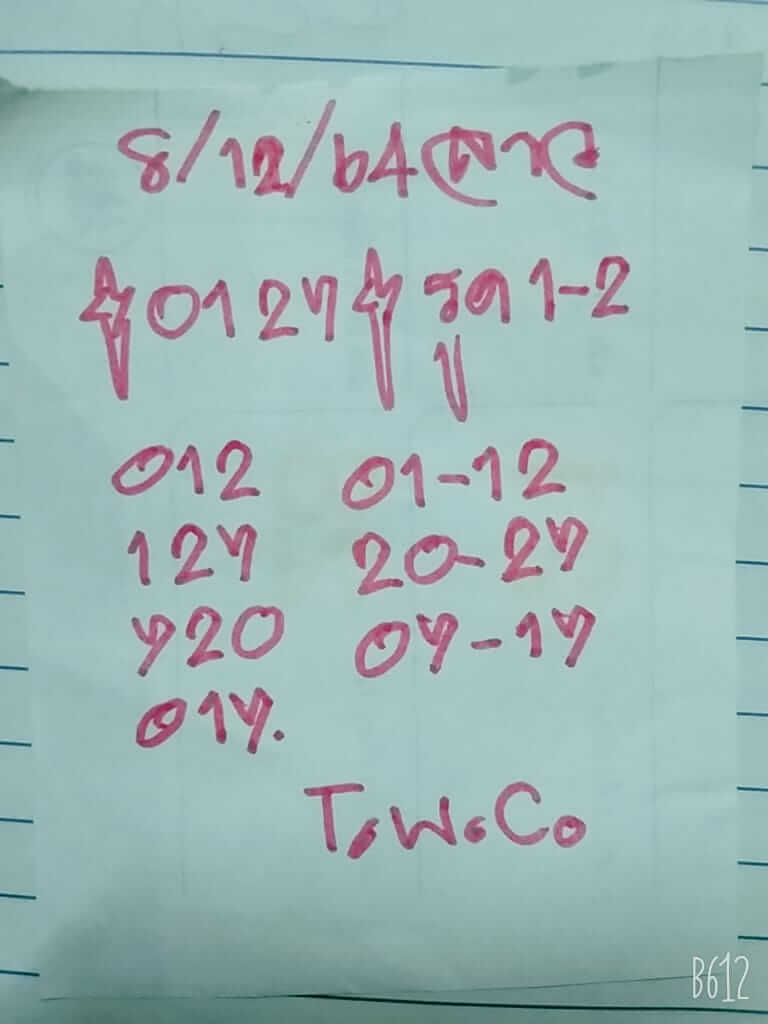 8/12/64 ลาว
0127 รูด 1-2
012 01-12
127 20-27
720 07-17
017.
T.W.C.
B612